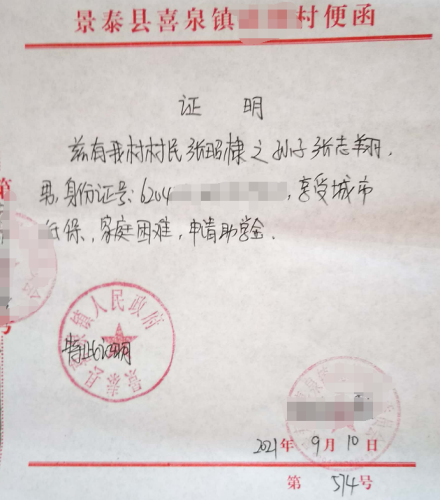 景泰县喜泉镇 村便函
证 明
兹有我村村民张昭棣之孙子张志翔,
男,身份证号:6204 ,享受城市
低保,家庭困难,申请助学金.
景泰县喜泉镇人民政府
特此证明
2021年 9月 10日
第 574号
第
号